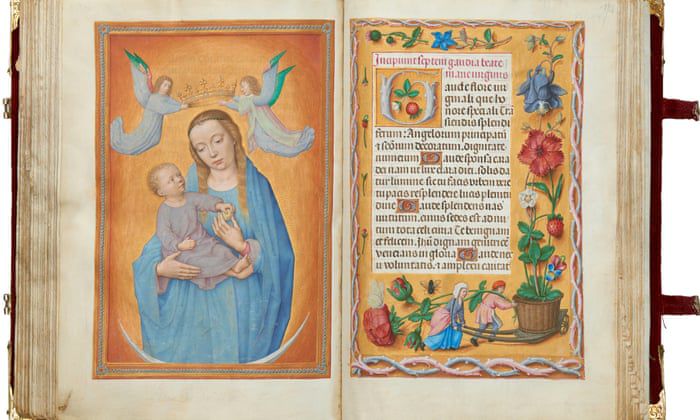 Incipiunt septem gaudia beate
marie virginis
Gaude flore vir
ginali que ho
nore speciali Trā
scendis splendi
ferum: Angelorum principatū
et sctōrum decoratum, dignitate
numerum Gaude sponsa cara
dei nam ut lux clara diei: solis da
tur lumine sic tu facis
tu pacis resplendere lucis plenitu
dine Gaude splendens vas
virtutum, cuius sedes est ad nu
tum tota celi curia Te benignam
et felicem, Jhū dignam genitricē
venerans in gloria Gaude ne
u voluntatis, et amplexu caritat